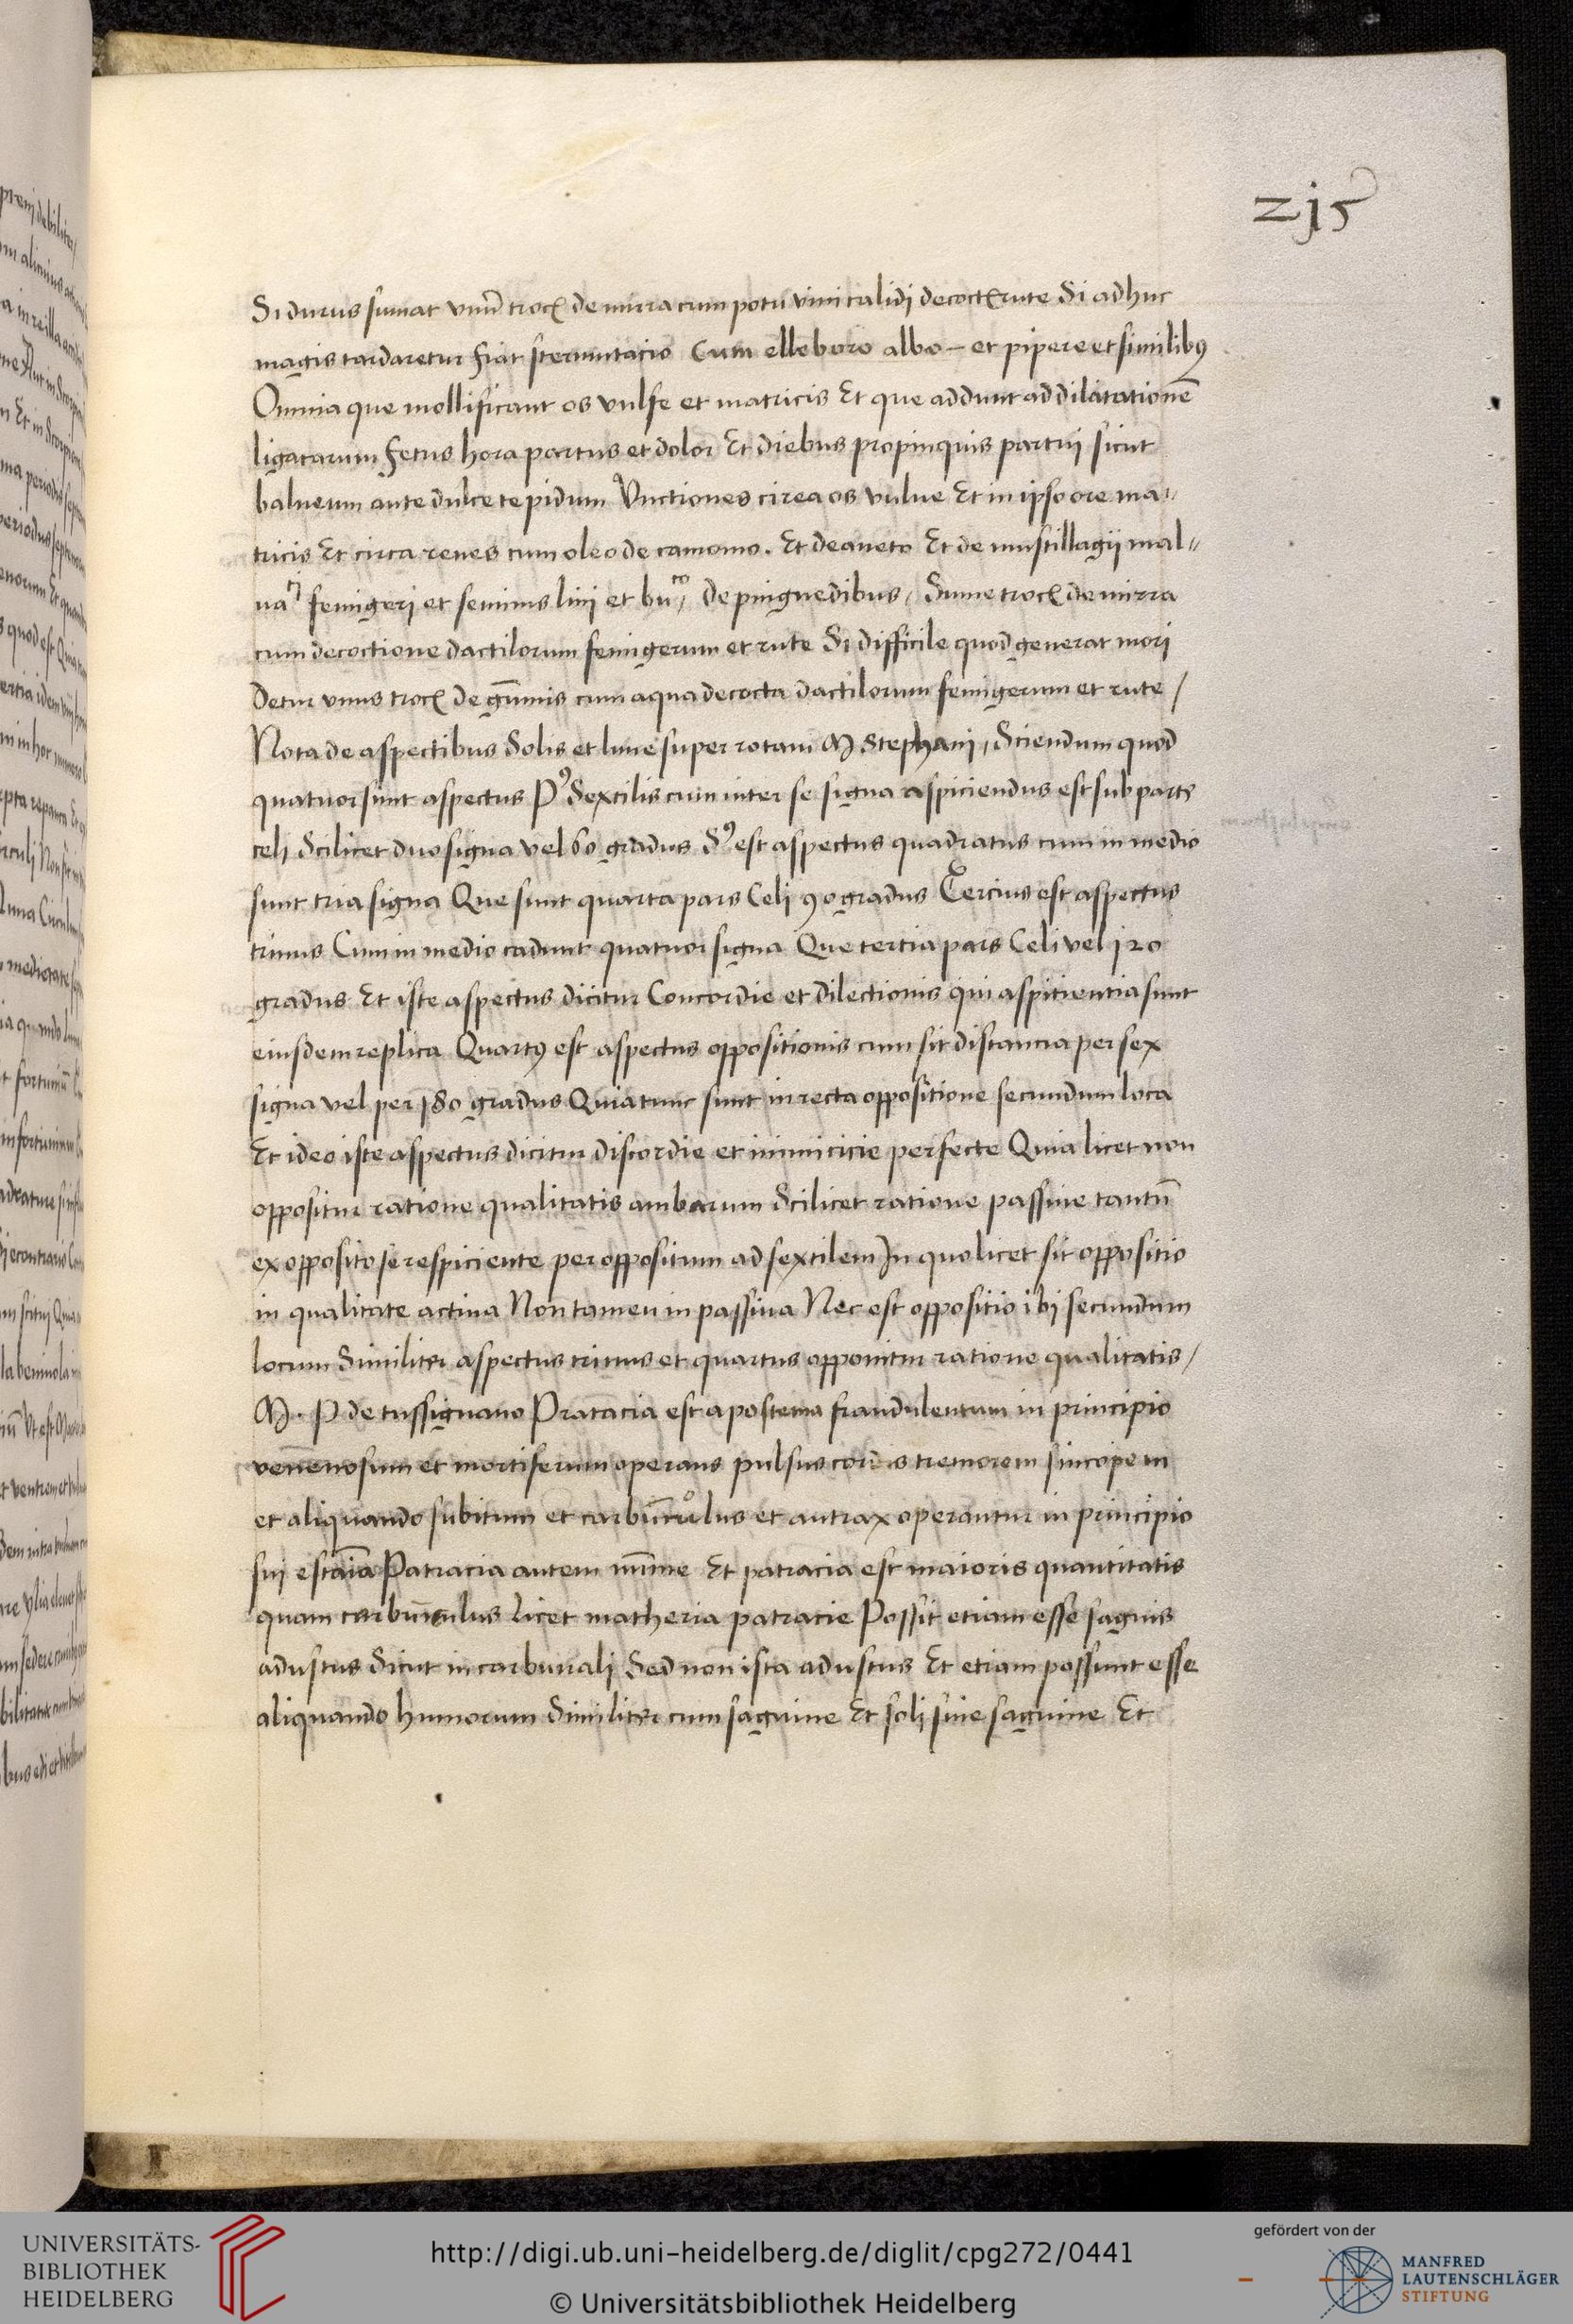 zj5
Si durus sumat vnū troc̄ de mirra cum potu vini calidi decoct̄ rute Si adhuc
magis tardaretur fiat sternutacio Cum elleboro albo – et pipere et similibꝰ
Omnia que mollificant os vulfe et matricis Et que addunt ad dilatationē
ligatarum fetus hora partus et dolor Et diebus propinquis partui sicut
balneum ante dulce tepidum Vnctiones circa os vulue Et in ipso ore ma„
tricis Et circa renes cum oleo de camomo. Et de aneto Et de mustillagij mal„
ua fenigeri et seminis lini et bu de pinguedibus / Sume troc̄ de mirra
cum decoctione dactilorum fenigerum et rute Si difficile quod generat mori
Detur vnus troc̄ de gūmis cum aqua decocta dactilorum fenigerum et rute /
Nota de aspectibus Solis et lune super rotam M Stephani / Sciendum quod
quatuor sunt aspectus Pꝰ Sextilis cum inter se signa aspiciendus est sub parte
celi Scilicet duo signa vel 60 gradus Sꝰ est aspectus quadratus cum in medio
sunt tria signa Que sunt quarta pars Celi 90 gradus Tercius est aspectus
trinus Cum in medio cadunt quatuor signa Que tertia pars Celi vel 120
gradus Et iste aspectus dicitur Concordie et dilectionis qui aspitientia sunt
eiusdem replica Quartꝰ est aspectus oppositionis cum sit distancia per sex
signa vel per 180 gradus Quia tunc sunt in recta oppositione secundum loca
Et ideo iste aspectus dicitur discordie et inimicicie perfecte Quia licet non
oppositur ratione qualitatis ambarum Scilicet ratione passiue tantū
ex opposito se respiciente per oppositum ad sextilem In quo licet sit oppositio
in qualitate actiua Non tamen in passiua Nec est oppositio ibi secundum
locum Similiter aspectus trinus et quartus opponitur ratione qualitatis /
M. P de tussignano Pratacia est apostema fraudulentum in principio
venenosum et mortiferum operans pulsus cordis tremorem sincopem
et aliquando subitum et carbūculus et antrax operantur in principio
sui estāia Patracia autem minime Et patracia est maioris quantitatis
quam carbūnculus licet matheria patracie Possit etiam esse saguis
adustus Sicut in carbunali Sed non ista adustus Et etiam possunt esse
aliquando humorum Similiter cum saguine Et soli sine saguine Et
UNIVERSITÄTS-
BIBLIOTHEK
HEIDELBERG
http://digi.ub.uni-heidelberg.de/diglit/cpg272/0441
© Universitätsbibliothek Heidelberg
gefördert von der
MANFRED
LAUTENSCHLÄGER
STIFTUNG